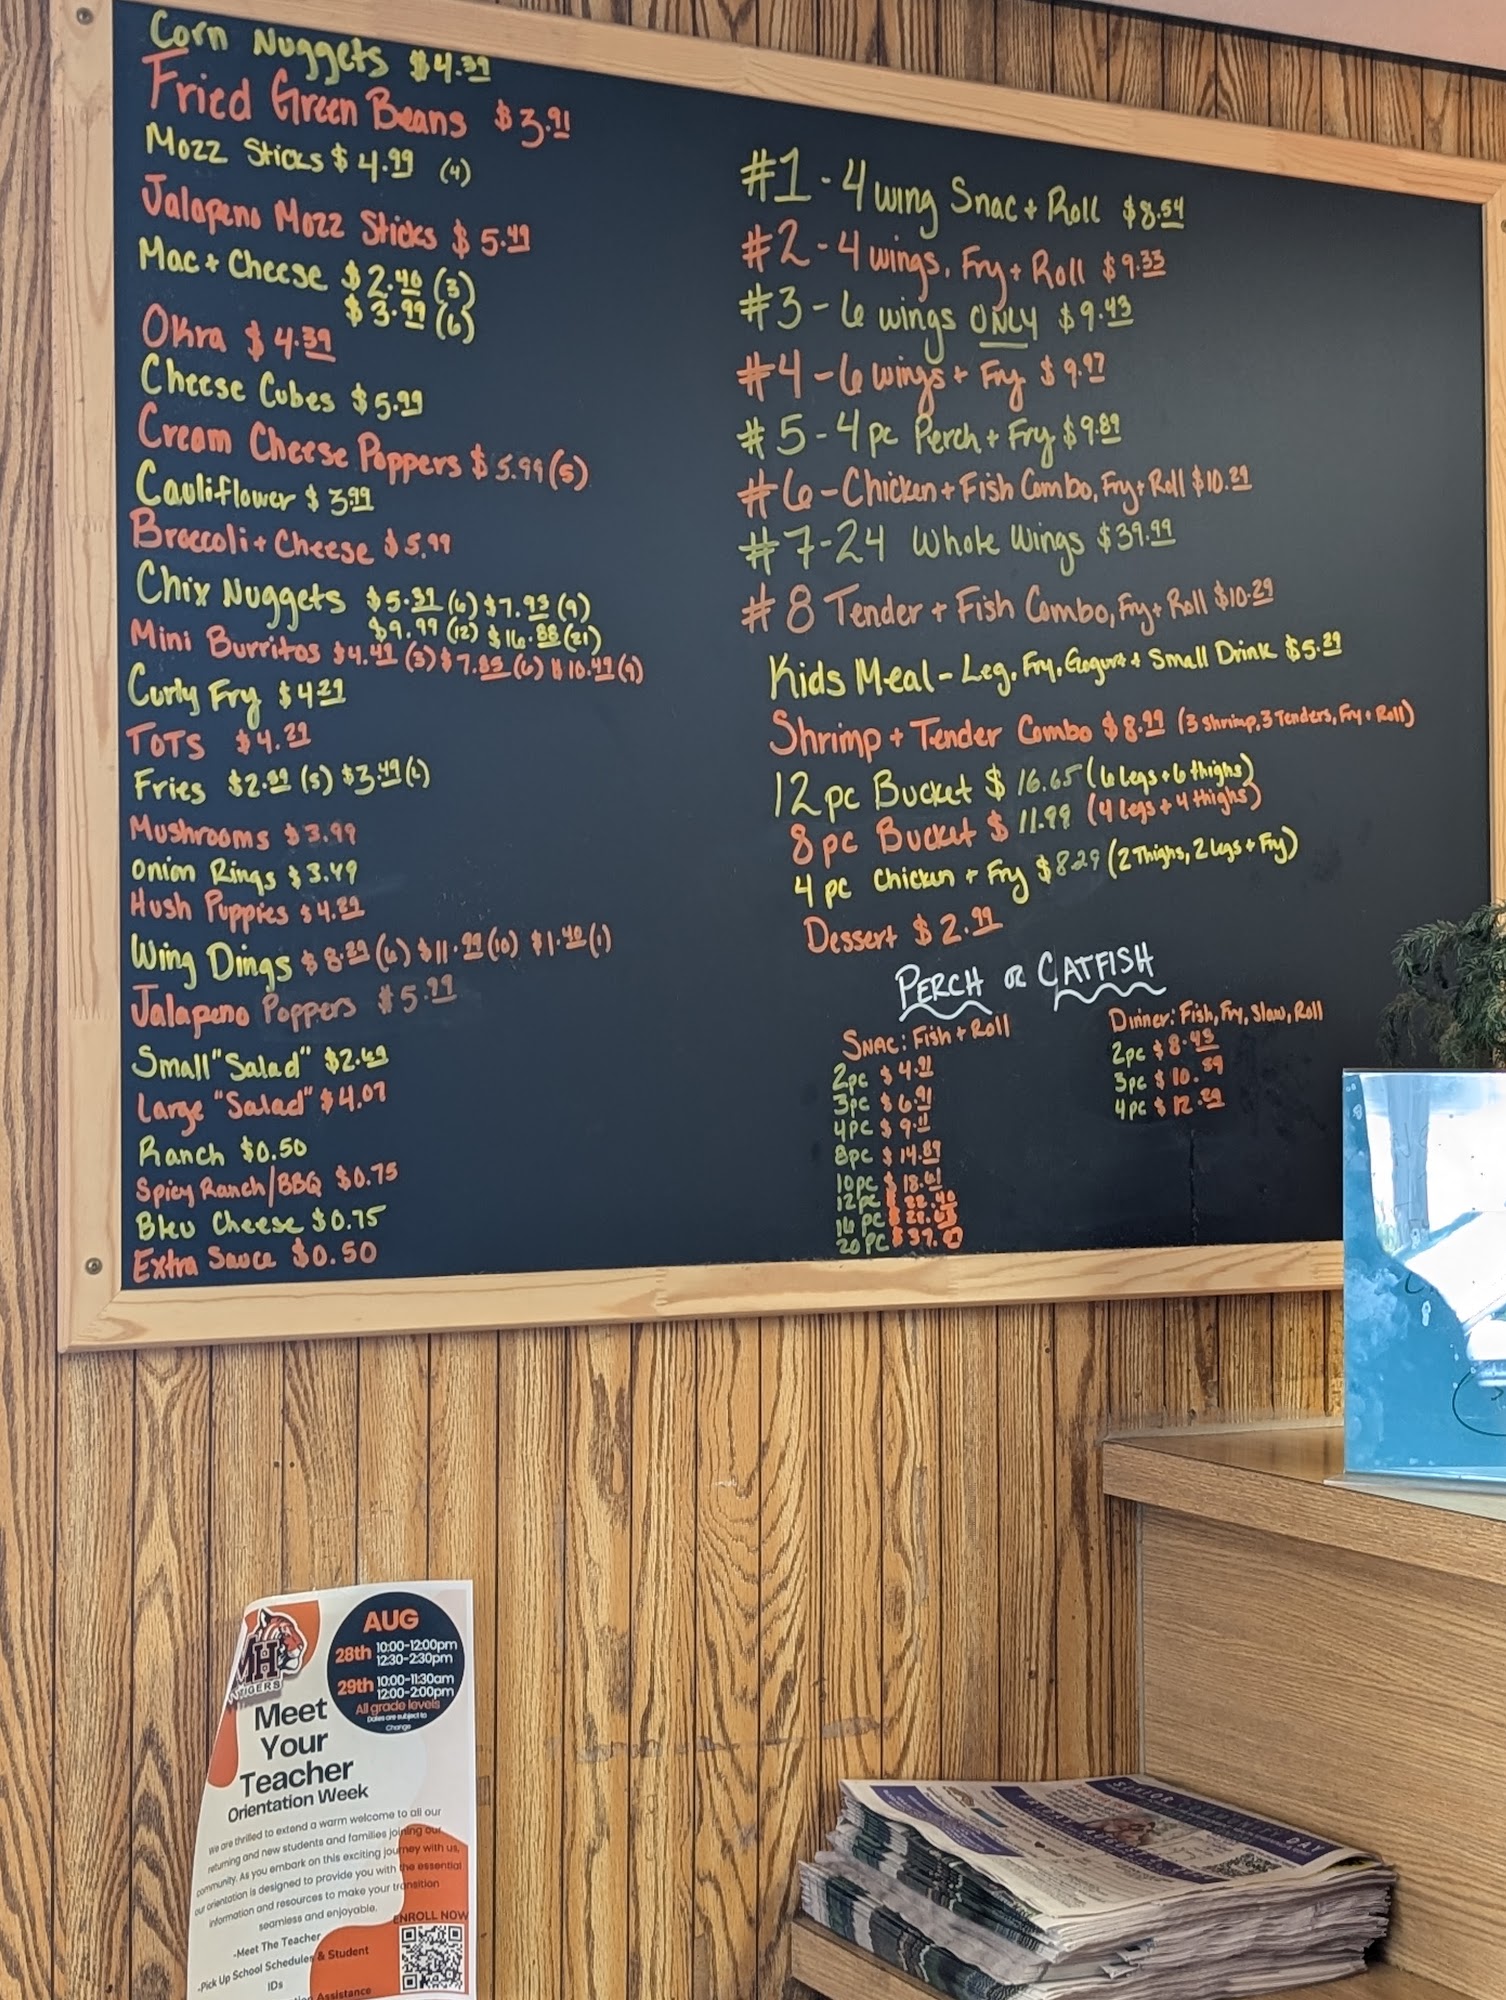 Corn Nuggets $4.39
Fried Green Beans $3.91
Mozz Sticks $4.99 (4)
Jalapeno Mozz Sticks $5.49
Mac + Cheese $2.40 (3)
$3.99 (6)
Okra $4.39
Cheese Cubes $5.99
Cream Cheese Poppers $5.99 (5)
Cauliflower $3.99
Broccoli + Cheese $5.99
Chix Nuggets $5.39 (6) $7.93 (9)
$9.99 (12) $16.88 (21)
Mini Burritos $4.49 (3) $7.85 (6) $10.49 (9)
Curly Fry $4.29
TOTS $4.29
Fries $2.89 (s) $3.49 (L)
Mushrooms $3.99
Onion Rings $3.49
Hush Puppies $4.29
Wing Dings $8.29 (6) $11.99 (10) $1.40 (1)
Jalapeno Poppers $5.99
Small "Salad" $2.69
Large "Salad" $4.07
Ranch $0.50
Spicy Ranch/BBQ $0.75
Bleu Cheese $0.75
Extra Sauce $0.50
#1 - 4 wing Snac + Roll $8.54
#2 - 4 wings, Fry + Roll $9.33
#3 - 6 wings ONLY $9.43
#4 - 6 wings + Fry $9.97
#5 - 4 pc Perch + Fry $9.89
#6 - Chicken + Fish Combo, Fry + Roll $10.29
#7 - 24 Whole Wings $39.99
#8 Tender + Fish Combo, Fry + Roll $10.29
Kids Meal - Leg, Fry, Gogurt + Small Drink $5.29
Shrimp + Tender Combo $8.99 (3 shrimp, 3 Tenders, Fry + Roll)
12 pc Bucket $16.65 (6 legs + 6 thighs)
8 pc Bucket $11.99 (4 legs + 4 thighs)
4 pc Chicken + Fry $8.29 (2 Thighs, 2 legs + Fry)
Dessert $2.99
PERCH OR CATFISH
SNAC: Fish + Roll
2pc $4.91
3pc $6.91
4pc $9.11
8pc $14.89
10pc $18.61
12pc $22.40
16 pc
20 PC $37.
Dinner: Fish, Fry, Slaw, Roll
2pc $8.45
3pc $10.59
4pc $12.29
MH
TIGERS
AUG
28th 10:00-12:00pm
12:30-2:30pm
29th 10:00-11:30am
12:00-2:00pm
All grade levels
Dates are subject to
Change
Meet
Your
Teacher
Orientation Week
We are thrilled to extend a warm welcome to all our
returning and new students and families joining our
community. As you embark on this exciting journey with us,
our orientation is designed to provide you with the essential
information and resources to make your transition
seamless and enjoyable.
ENROLL NOW
-Meet The Teacher
-Pick Up School Schedules & Student
IDs
Assistance
SENIOR DAY